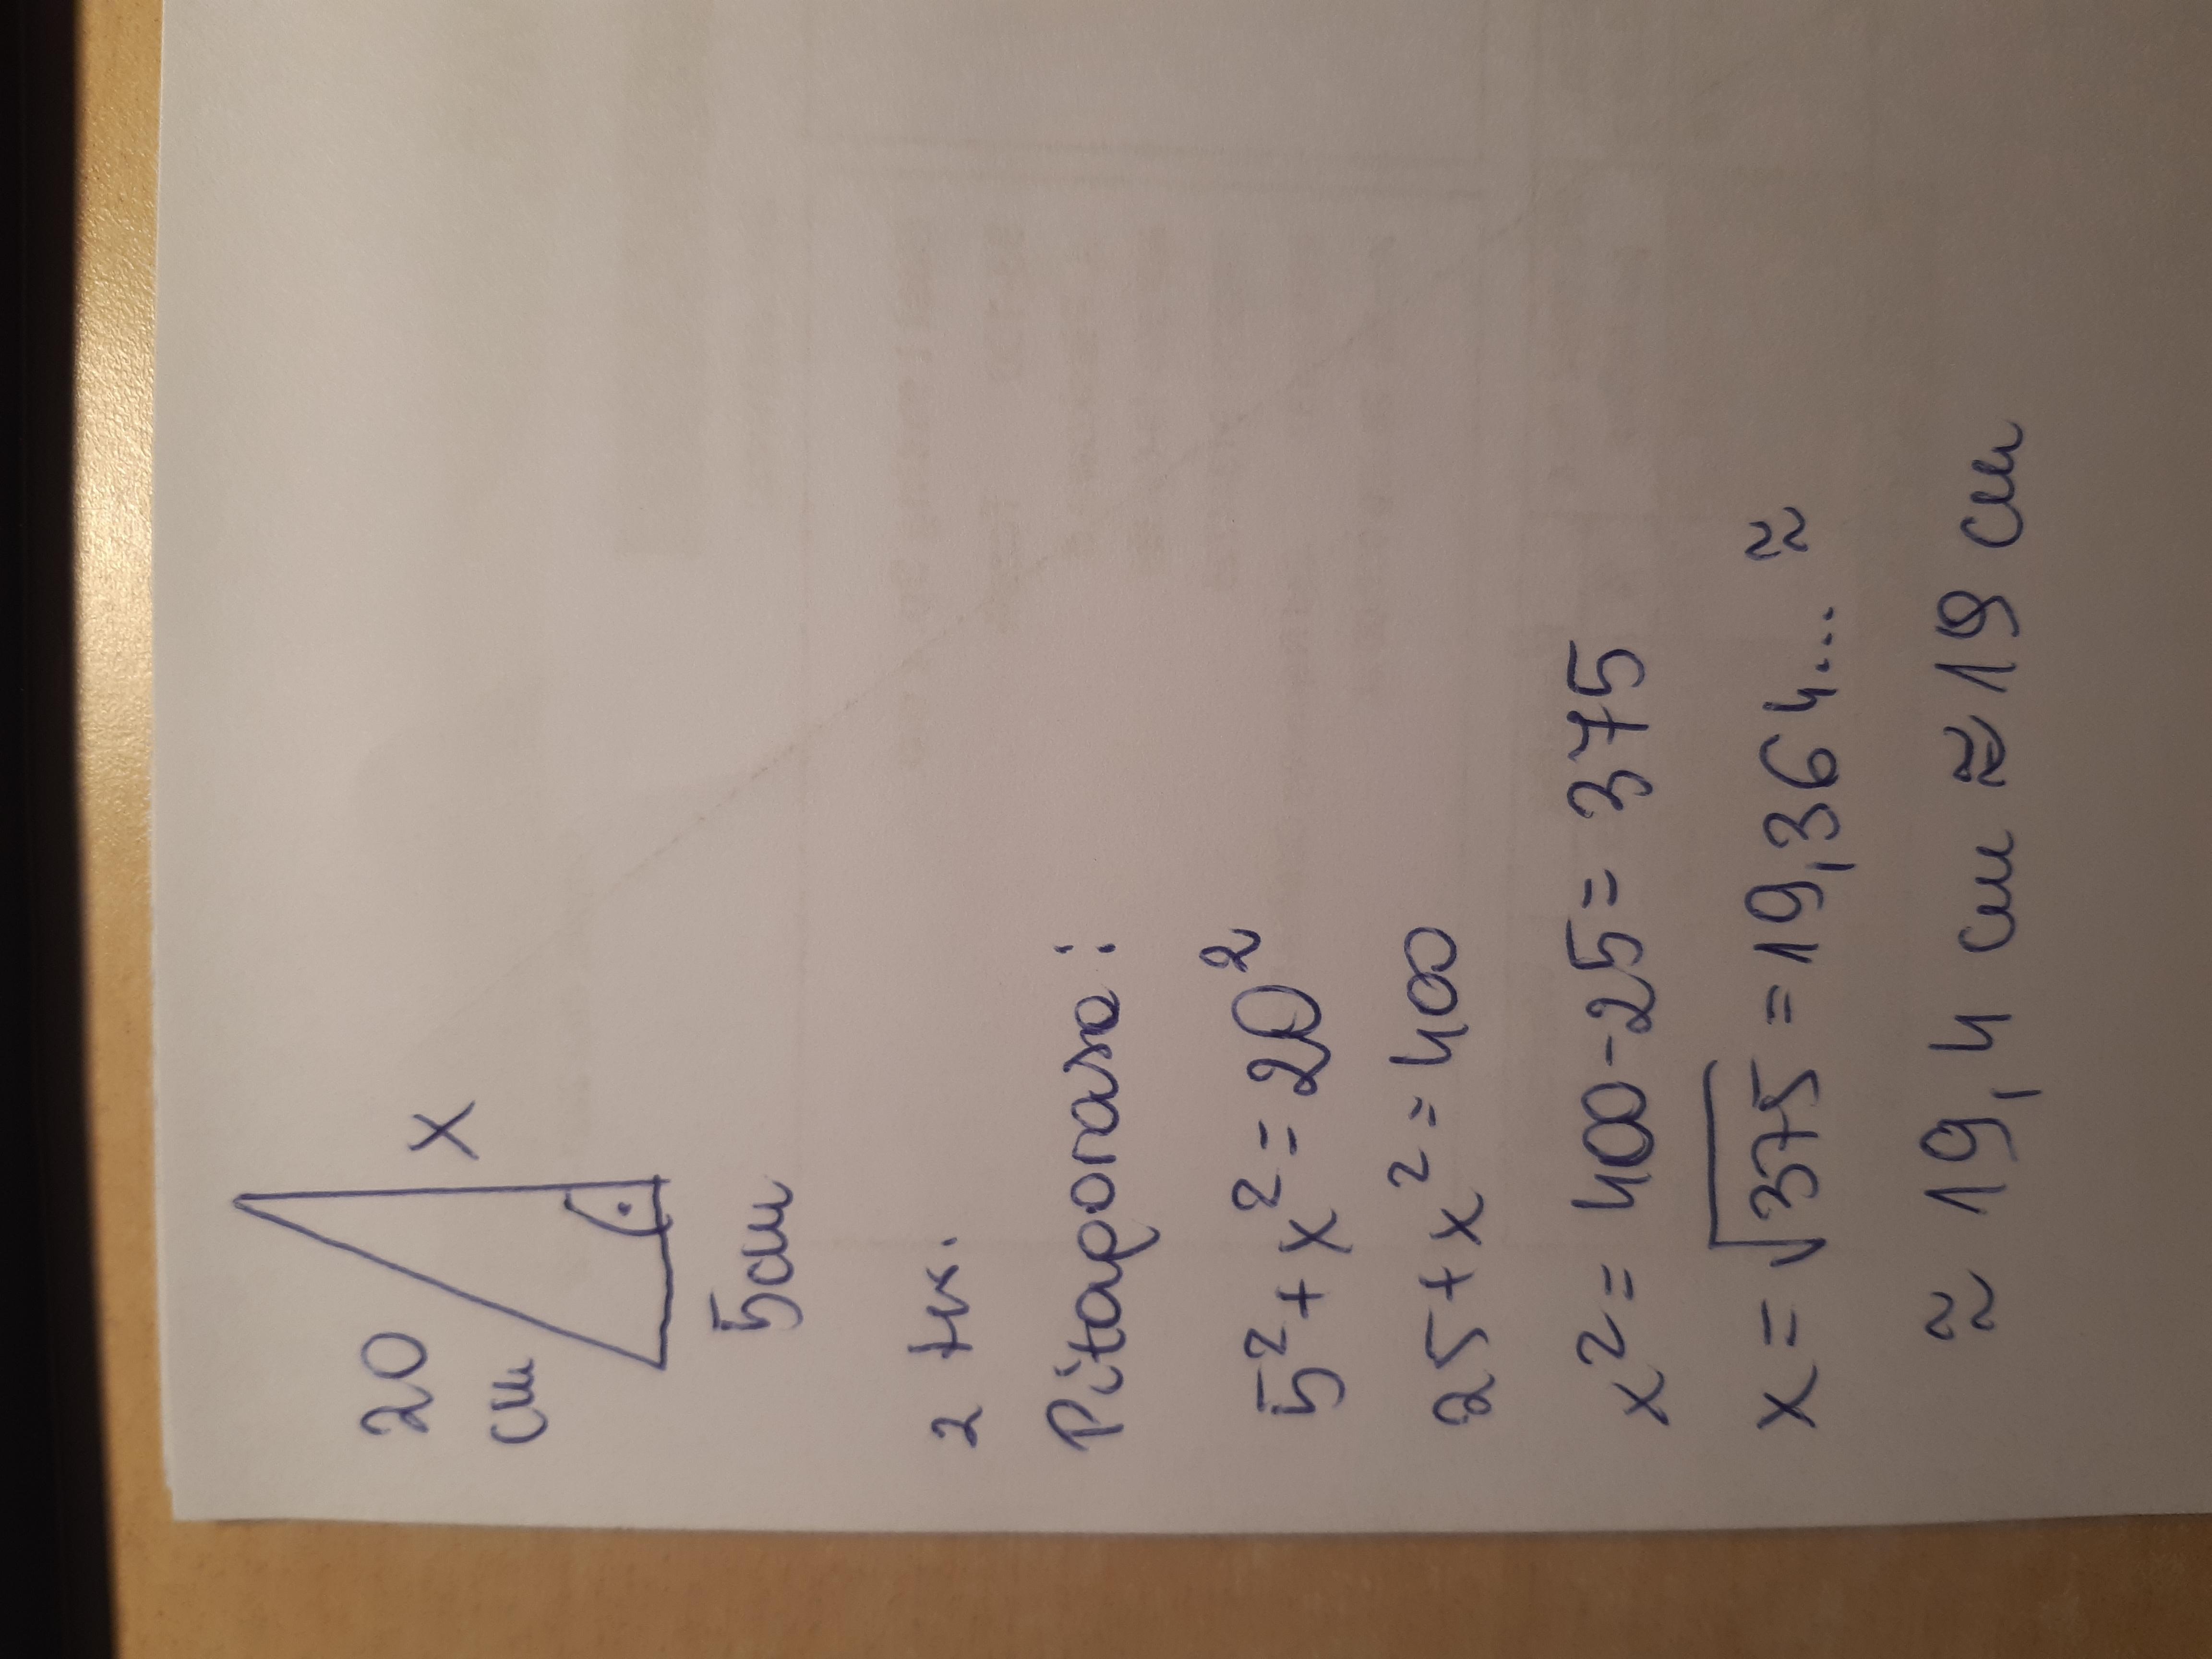 20
cm
x
5cm
2 tw.
Pitagorasa:
5²+x²=20²
25+x²=400
x²=400-25=375
x=√375=19,364...≈
≈19,4 cm≈19 cm